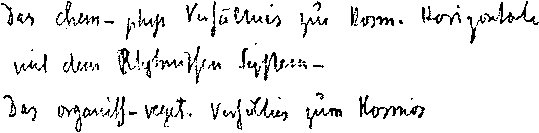 Das chem-phys Verhältnis zur kosm. Horizontale
mit dem Rhythmischen System-
Das organisch-veget. Verhältnis zum Kosmos